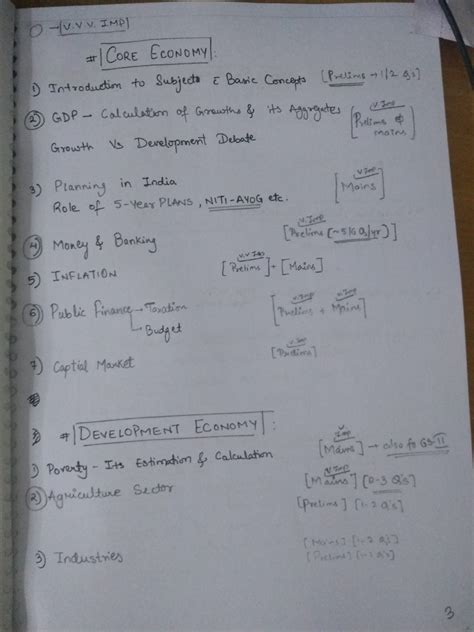 O → V.V.V. IMP
# CORE ECONOMY:
1) Introduction to Subjects c̄ Basic Concepts [Prelims → 1/2 Q's]
2) GDP - Calculation of Growths & its Aggregates
Growth Vs Development Debate
V. Imp
[Prelims & mains]
3) Planning in India
Role of 5-Year PLANS, NITI-AYOG etc.
V. Imp
[Mains]
4) Money & Banking
V. Imp
[Prelims (~5/6 Q/yr)]
5) INFLATION
V.V Imp
[Prelims] - [Mains]
6) Public Finance → Taxation
→ Budget
V. Imp V. Imp
[Prelims + Mains]
7) Captial Market
V. Imp
[Prelims]
# DEVELOPMENT ECONOMY:
1) Poverty - Its Estimation & Calculation
V Imp
[Mains] → also fo GS-II
2) Agriculture Sector
V Imp
[Mains] [0-3 Q's]
[Prelims] [1-2 Q's]
3) Industries
[Mains] [1-2 Q's]
[Prelims] [1-2 Q's]
3